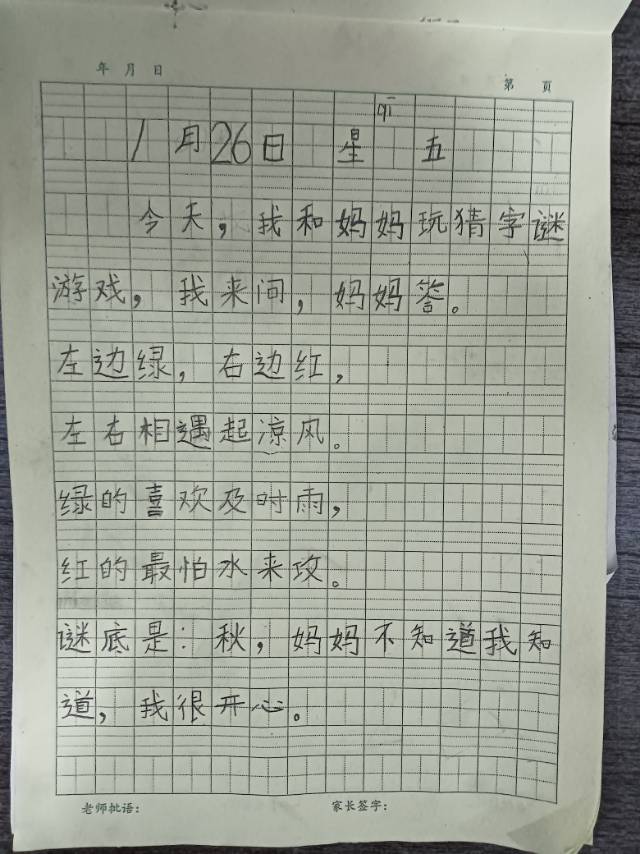 年 月 日
第 页
qī
1月26日 星 五
今天，我和妈妈玩猜字谜
游戏，我来问，妈妈答。
左边绿，右边红，
左右相遇起凉风。
绿的喜欢及时雨，
红的最怕水来攻。
谜底是：秋，妈妈不知道我知
道，我很开心。
老师批语：
家长签字：